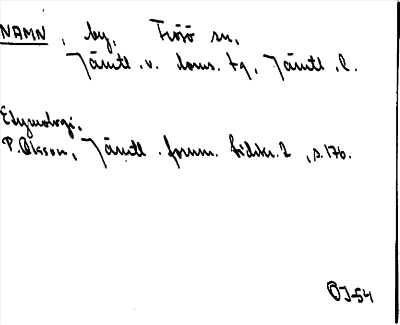 NAMN, by, Frösö sn,
Jämtl. v. doms. tg, Jämtl. l.
Etymologi,
P. Olsson, Jämtl. fornm. tidskr. 2, s. 176.
ÖJ-54